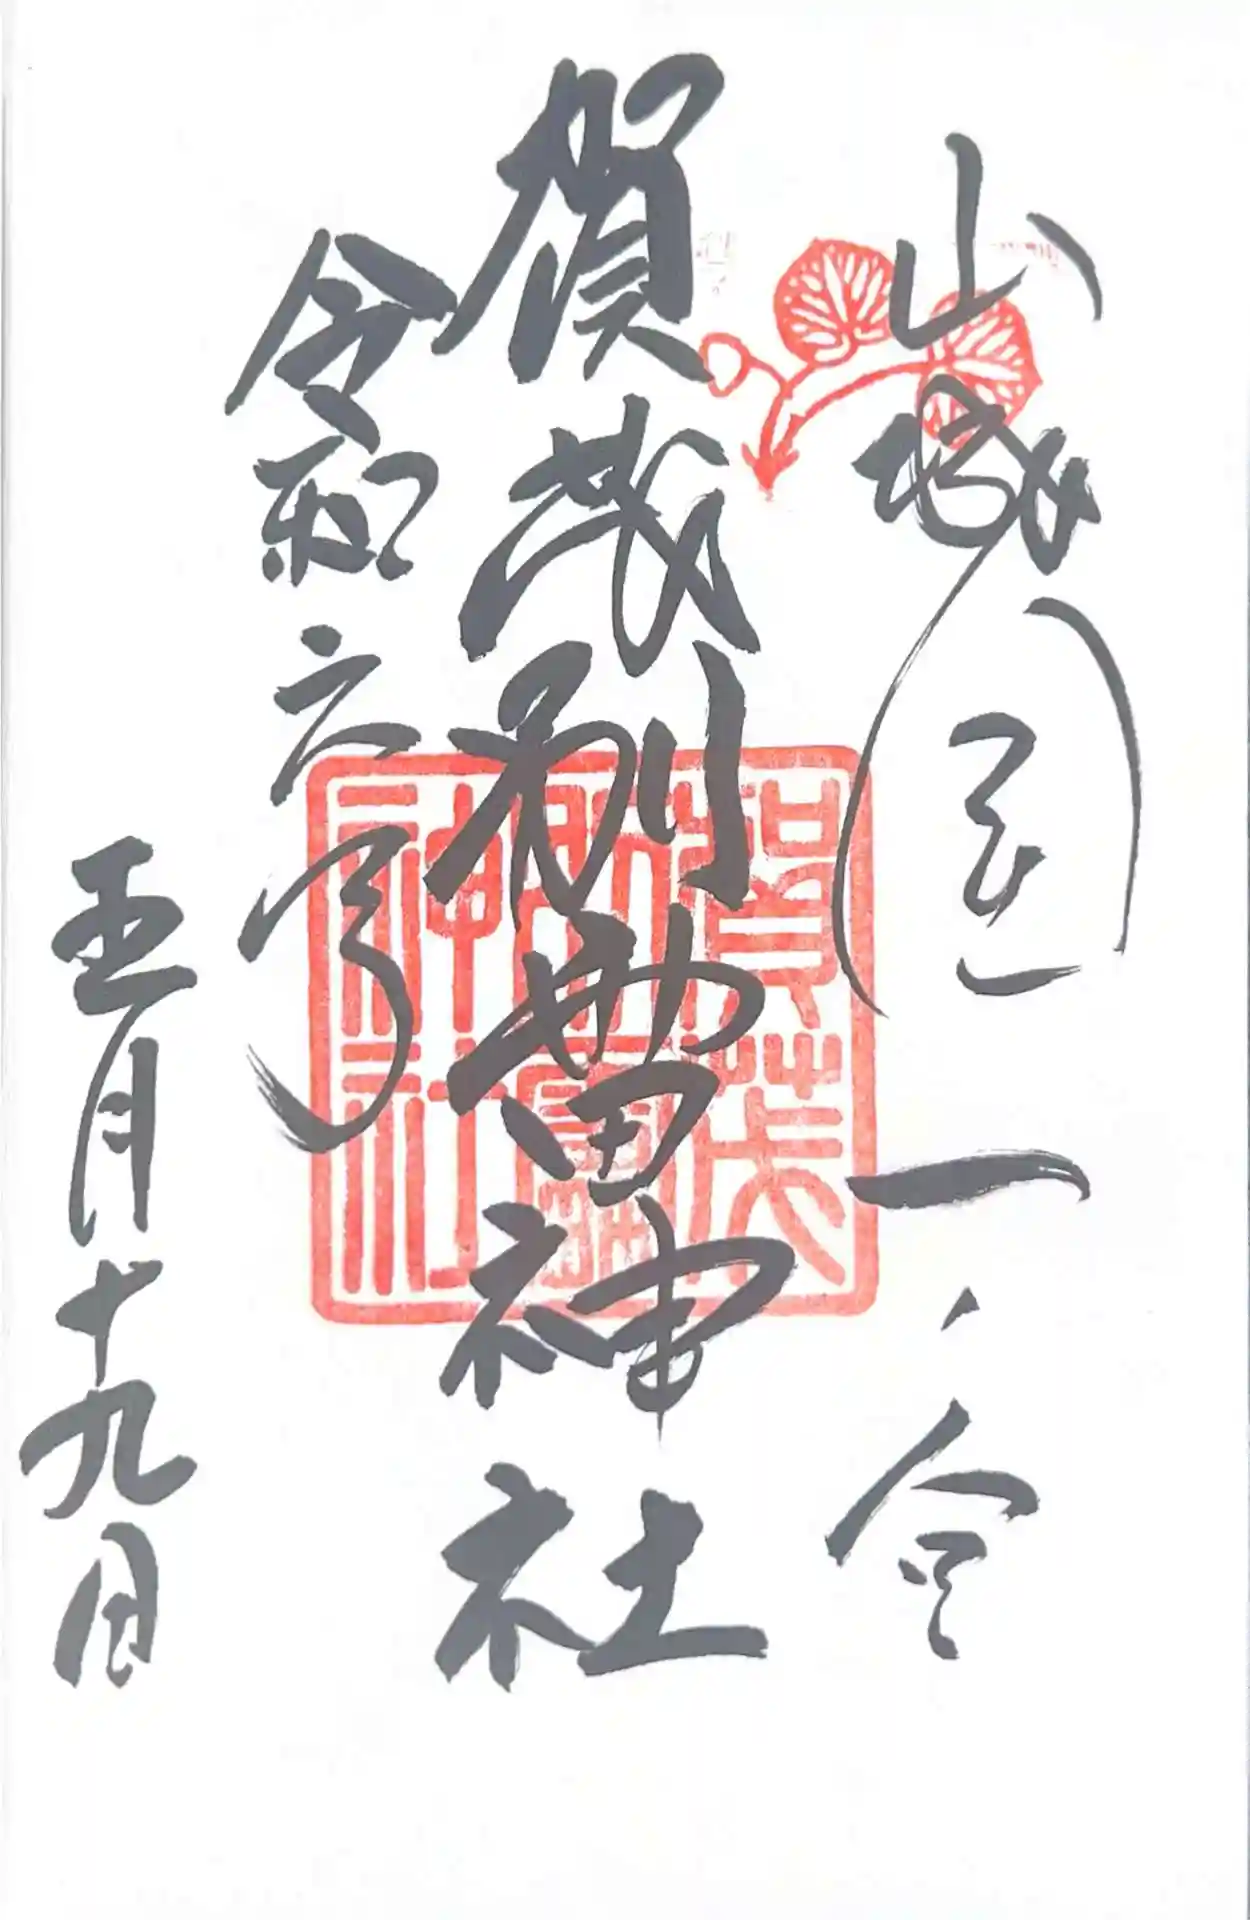 山城國一ノ宮
賀茂別雷神社
令和六年
五月十九日
賀茂
別雷
神社